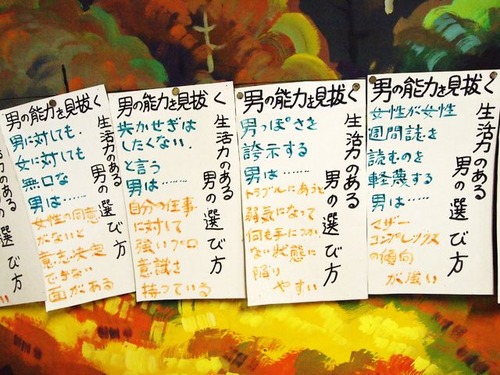 力のある
の選び方
男の能力を見抜く
生活力のある
男の選び方
男に対しても、
女に対しても、
無口な
男は……
女性の同意
がないと
意志決定
できない
面がある
男の能力を見抜く
生活力のある
男の選び方
歩かせぎは
したくない、
と言う
男は……
自分の仕事
に対して
強いプロ
意識を
持っている
男の能力を見抜く
生活力のある
男の選び方
男っぽさを
誇示する
男は……
トラブルにあうと
弱気になって
何も手につか
ない状態に
陥り
やすい
男の能力を見抜く
生活力のある
男の選び方
女性が女性
週間誌を
読むのを
軽蔑する
男は……
マザー
コンプレックス
の傾向
が強い